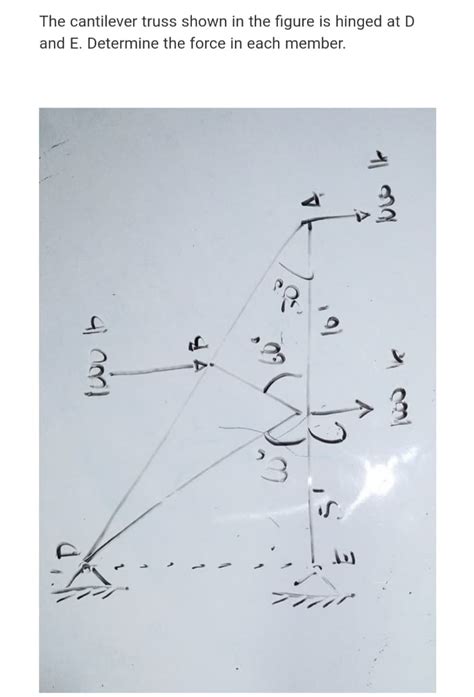 The cantilever truss shown in the figure is hinged at D
and E. Determine the force in each member.
D
B
A
30°
60°
10'
C
5'
E